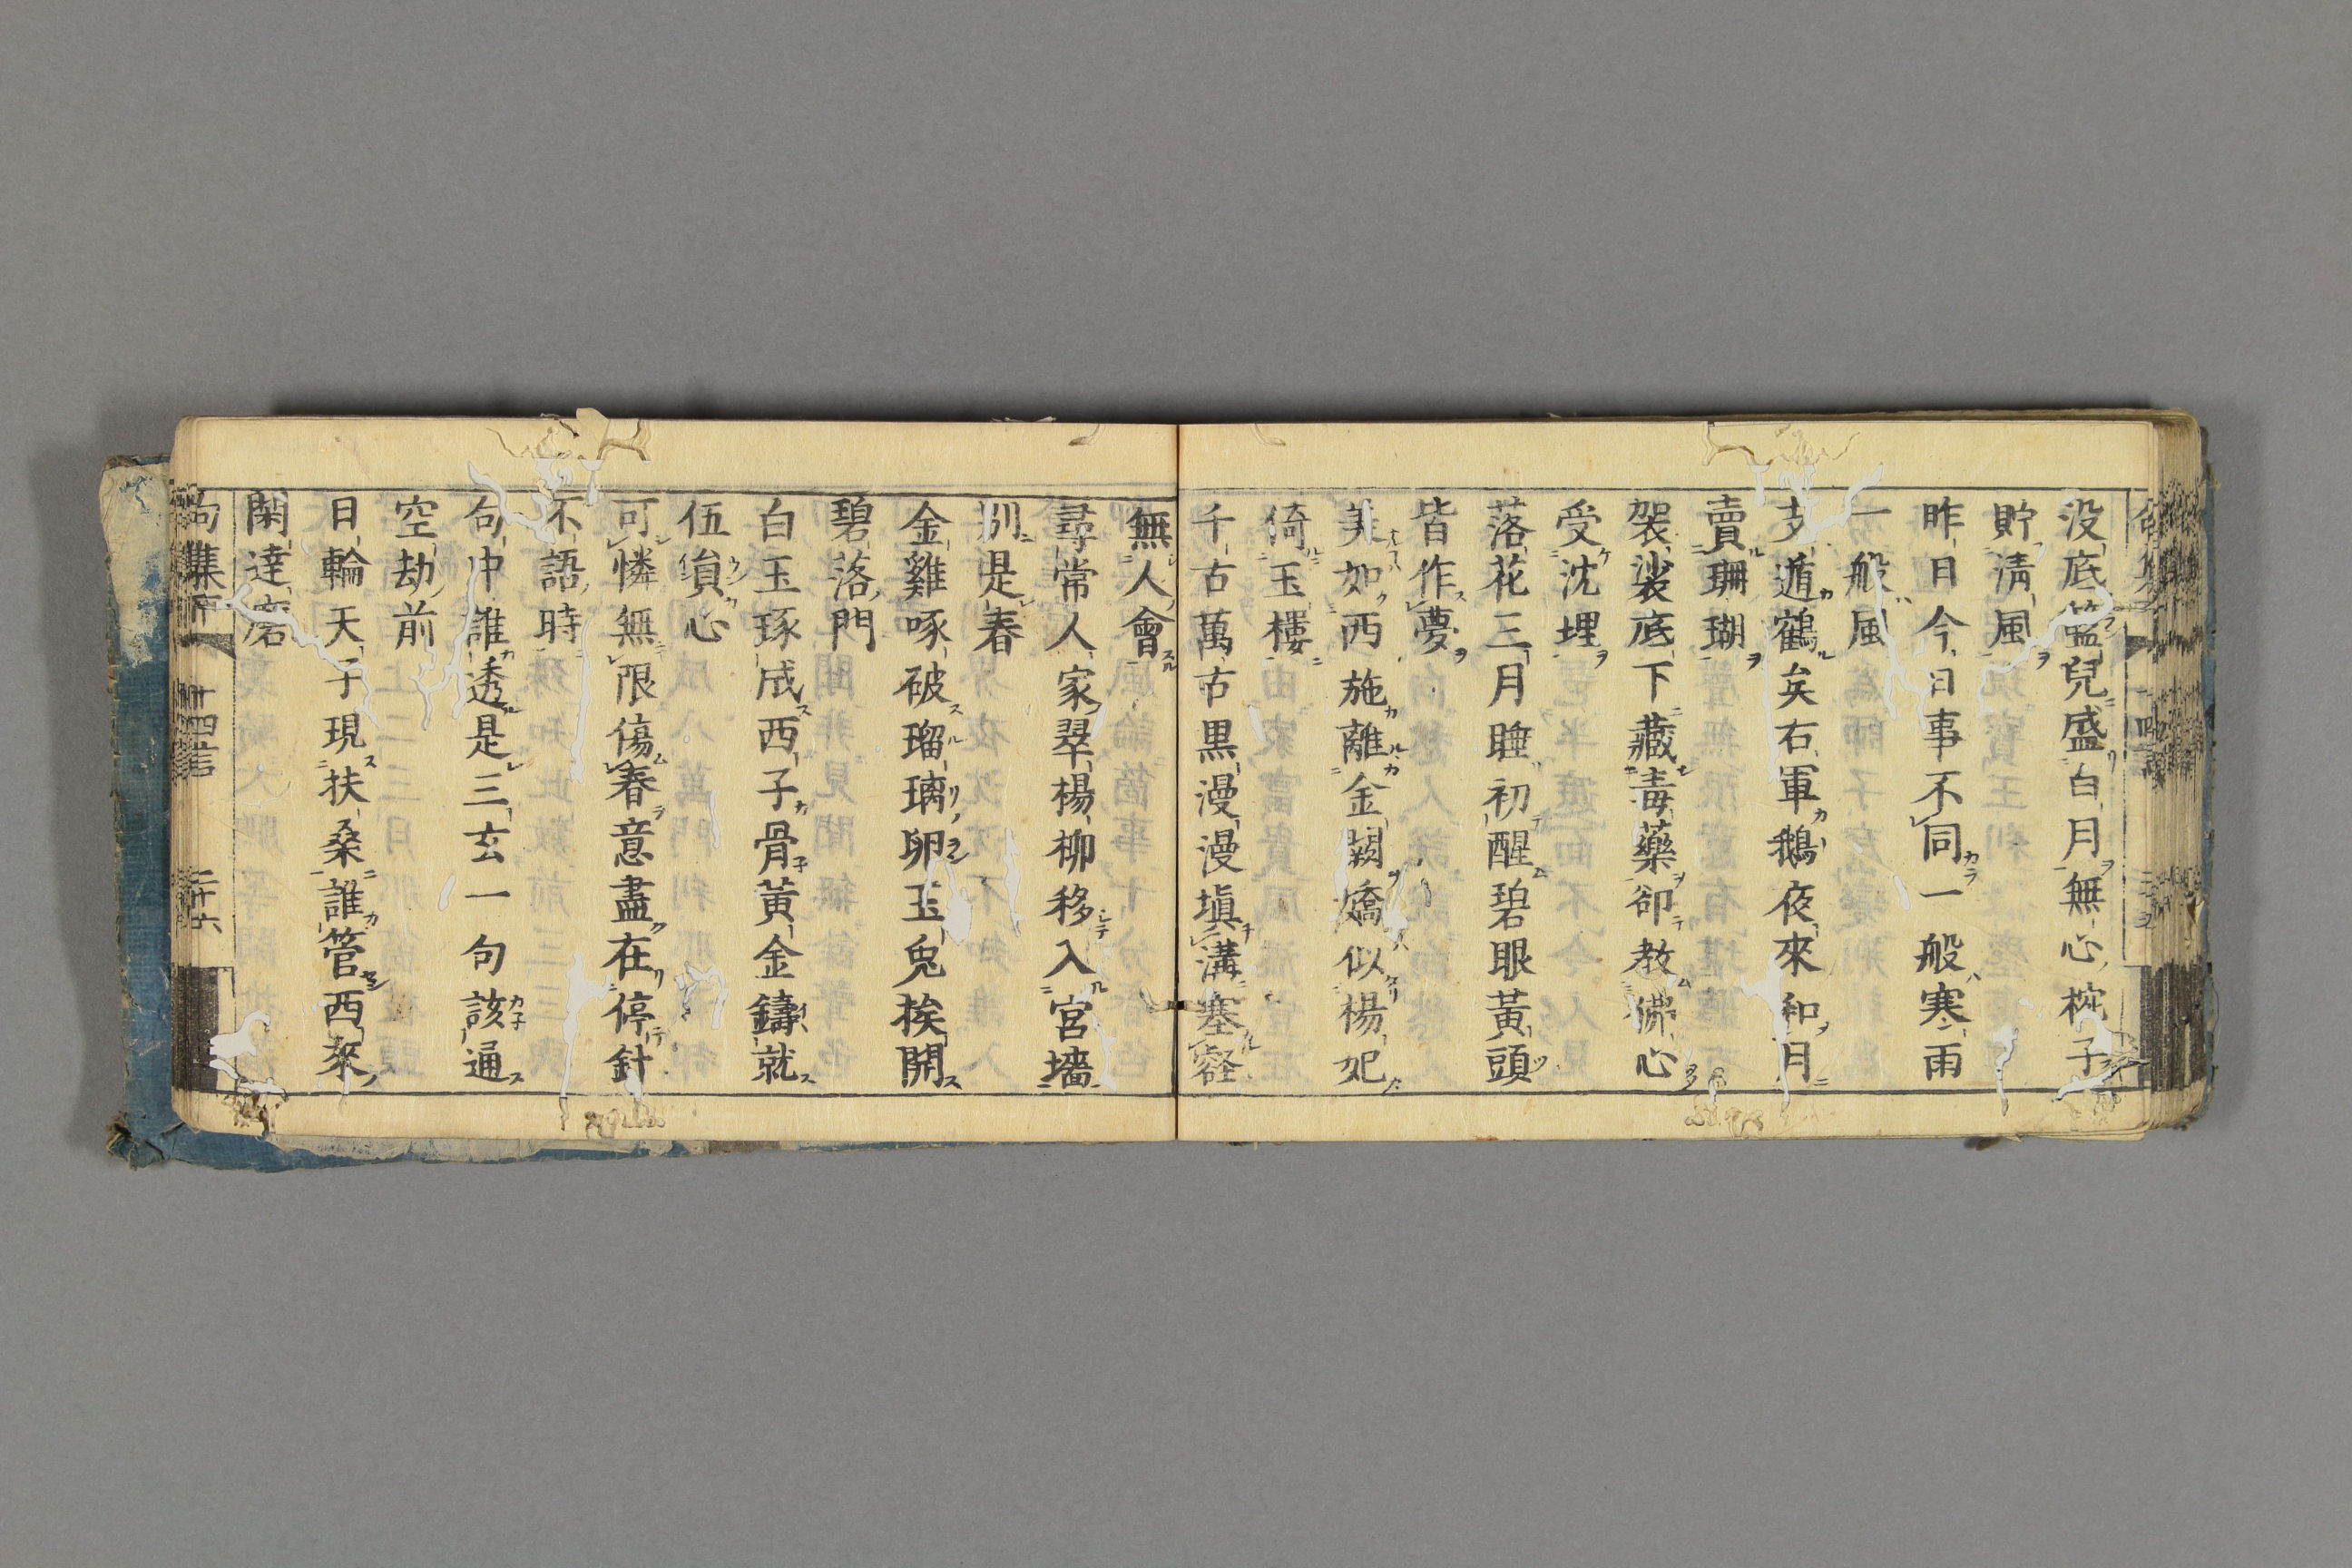 没底籃兒盛白月無心椀子
貯淸風
昨日今日事不同一般寒雨
一般風
支遁鶴矣右軍鵝夜來和月
賣珊瑚
袈裟底下藏毒藥卻教佛心
受沈埋
落花三月睡初醒碧眼黃頭
皆作夢
美如西施離金闕嬌似楊妃
倚玉樓
千古萬古黒漫漫塡溝塞壑
無人會
尋常人家翠楊柳移入宮墻
別是春
金雞啄破瑠璃卵玉兎挨開
碧落門
白玉琢成西子骨黃金鑄就
伍員心
可憐無限傷春意盡在停針
不語時
句中誰透是三玄一句該通
空劫前
日輪天子現扶桑誰管西來
閑達磨
句集 十四言 二十六